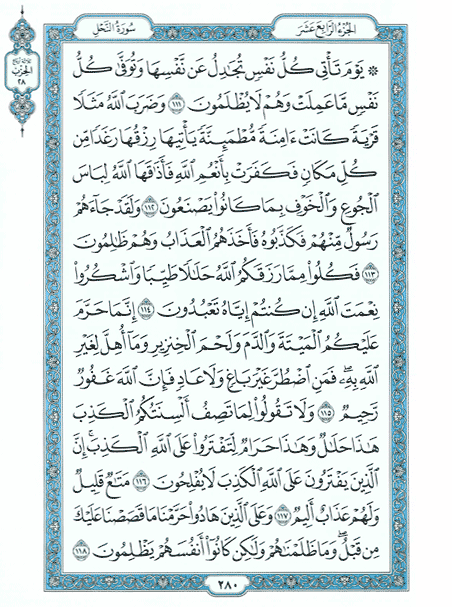 الجزء الرابع عشر
سورة النحل
ربع
الحزب
٢٨
۞ يَوْمَ تَأْتِي كُلُّ نَفْسٍ تُجَٰدِلُ عَن نَّفْسِهَا وَتُوَفَّىٰ كُلُّ
نَفْسٍ مَّا عَمِلَتْ وَهُمْ لَا يُظْلَمُونَ ١١١ وَضَرَبَ ٱللَّهُ مَثَلًا
قَرْيَةً كَانَتْ ءَامِنَةً مُّطْمَئِنَّةً يَأْتِيهَا رِزْقُهَا رَغَدًا مِّن
كُلِّ مَكَانٍ فَكَفَرَتْ بِأَنْعُمِ ٱللَّهِ فَأَذَٰقَهَا ٱللَّهُ لِبَاسَ
ٱلْجُوعِ وَٱلْخَوْفِ بِمَا كَانُوا۟ يَصْنَعُونَ ١١٢ وَلَقَدْ جَآءَهُمْ
رَسُولٌ مِّنْهُمْ فَكَذَّبُوهُ فَأَخَذَهُمُ ٱلْعَذَابُ وَهُمْ ظَٰلِمُونَ
١١٣ فَكُلُوا۟ مِمَّا رَزَقَكُمُ ٱللَّهُ حَلَٰلًا طَيِّبًا وَٱشْكُرُوا۟
نِعْمَتَ ٱللَّهِ إِن كُنتُمْ إِيَّاهُ تَعْبُدُونَ ١١٤ إِنَّمَا حَرَّمَ
عَلَيْكُمُ ٱلْمَيْتَةَ وَٱلدَّمَ وَلَحْمَ ٱلْخِنزِيرِ وَمَآ أُهِلَّ لِغَيْرِ
ٱللَّهِ بِهِۦ فَمَنِ ٱضْطُرَّ غَيْرَ بَاغٍ وَلَا عَادٍ فَإِنَّ ٱللَّهَ غَفُورٌ
رَّحِيمٌ ١١٥ وَلَا تَقُولُوا۟ لِمَا تَصِفُ أَلْسِنَتُكُمُ ٱلْكَذِبَ
هَٰذَا حَلَٰلٌ وَهَٰذَا حَرَامٌ لِّتَفْتَرُوا۟ عَلَى ٱللَّهِ ٱلْكَذِبَ ۚ إِنَّ
ٱلَّذِينَ يَفْتَرُونَ عَلَى ٱللَّهِ ٱلْكَذِبَ لَا يُفْلِحُونَ ١١٦ مَتَٰعٌ قَلِيلٌ
وَلَهُمْ عَذَابٌ أَلِيمٌ ١١٧ وَعَلَى ٱلَّذِينَ هَادُوا۟ حَرَّمْنَا مَا قَصَصْنَا عَلَيْكَ
مِن قَبْلُ ۖ وَمَا ظَلَمْنَٰهُمْ وَلَٰكِن كَانُوٓا۟ أَنفُسَهُمْ يَظْلِمُونَ ١١٨
٢٨٠